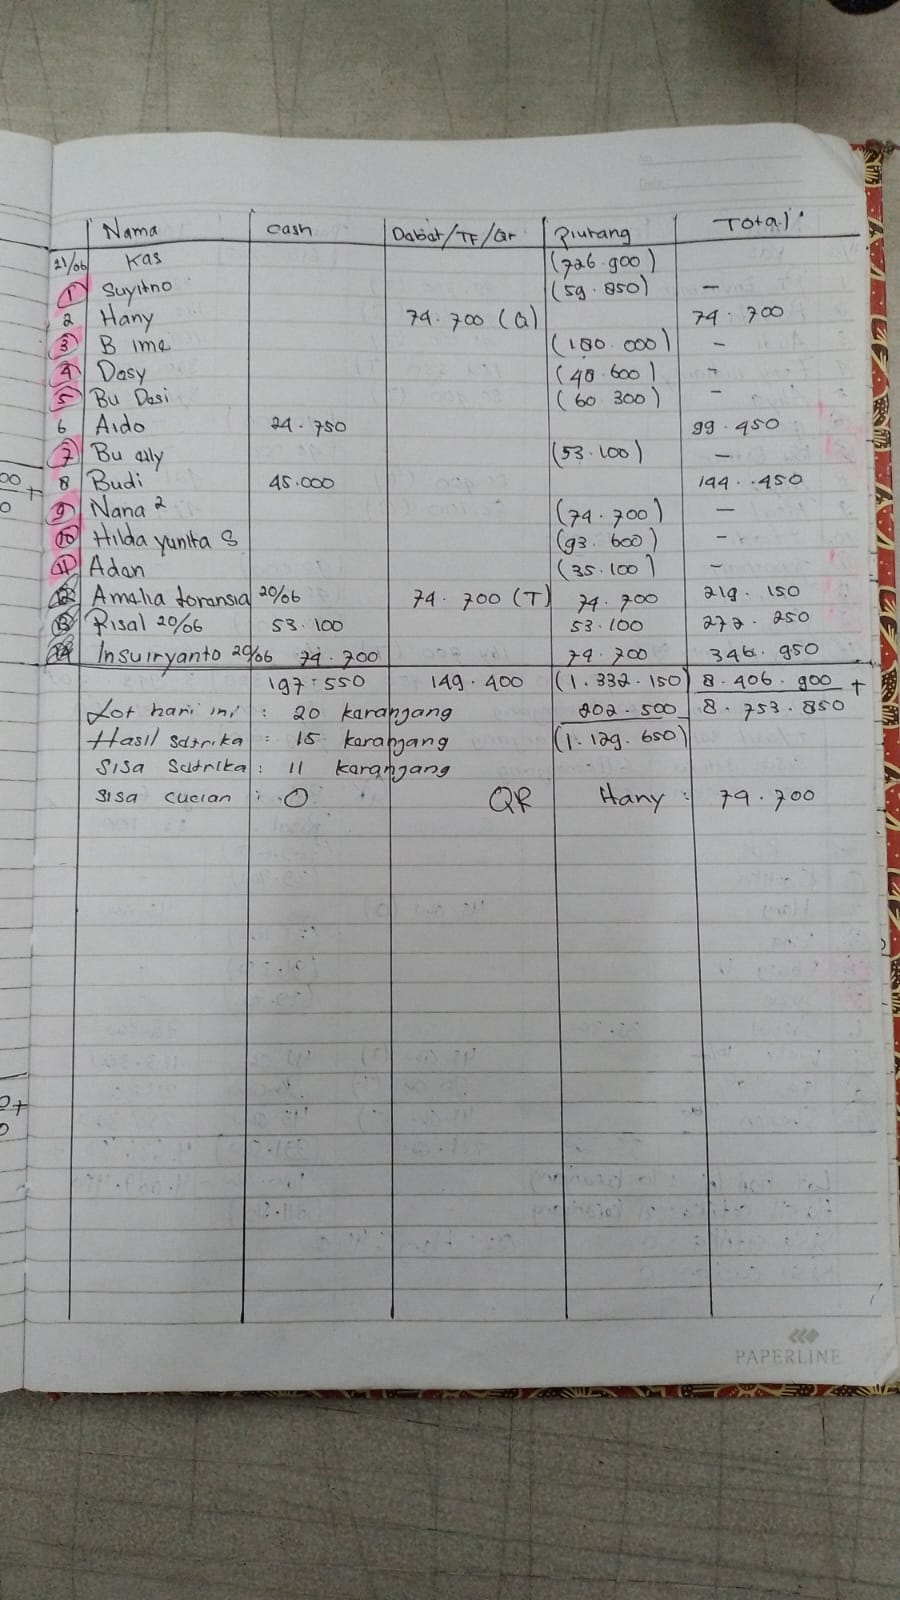 No.
Date
Nama cash Debet/TF/Qr Piutang Total
21/06 Kas (726.900)
1 Suyitno (59.850) -
2 Hany 74.700 (Q) 74.700
3 B ime (180.000) -
4 Desy (48.600) -
5 Bu Desi (60.300) -
6 Aldo 24.750 99.450
7 Bu elly (53.100) -
8 Budi 45.000 144.450
9 Nana 2 (74.700) -
10 Hilda yunita S (93.600) -
11 Adan (35.100) -
12 Amelia foransia 20/06 74.700 (T) 74.700 219.150
13 Risal 20/06 53.100 53.100 272.250
14 Insuiryanto 20/06 74.700 74.700 346.950
197.550 149.400 (1.332.150) 8.406.900 +
Lot hari ini : 20 keranjang 202.500 8.753.850
Hasil Setrika : 15 keranjang (1.129.650)
Sisa Setrika : 11 keranjang
Sisa cucian : 0 QR Hany : 74.700
PAPERLINE